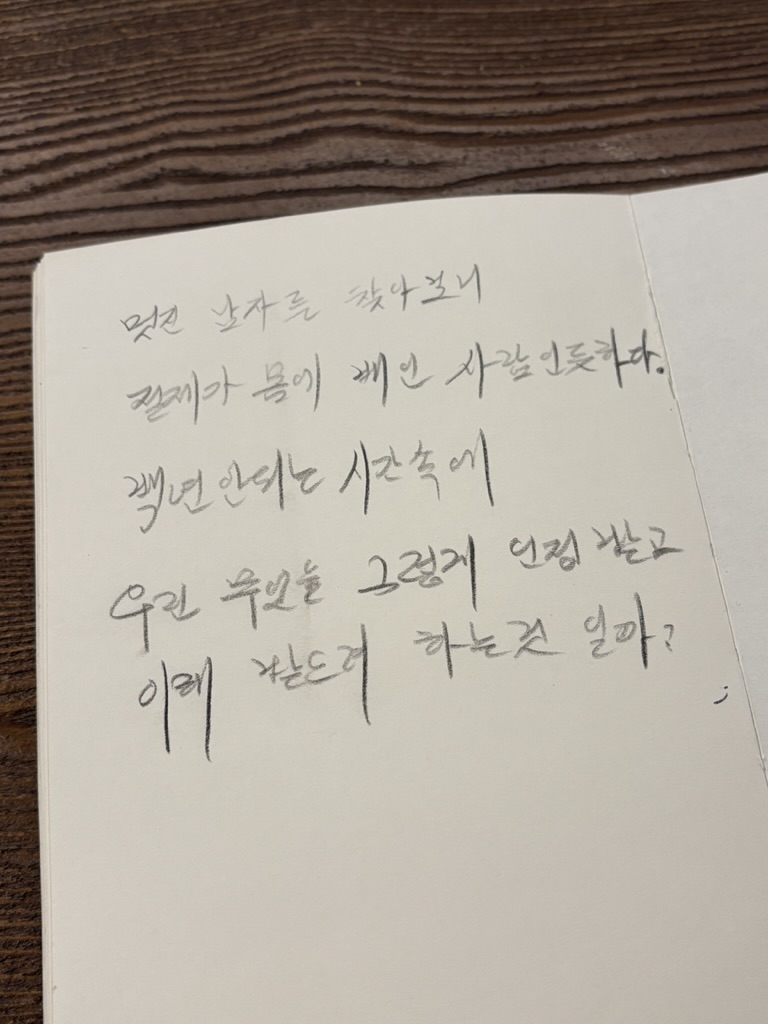 멋진 남자를 찾아보니
절제가 몸에 베인 사람인듯하다.
백년 안되는 시간속에
우린 무엇을 그렇게 인정 받고
이해 받으려 하는것 일까?